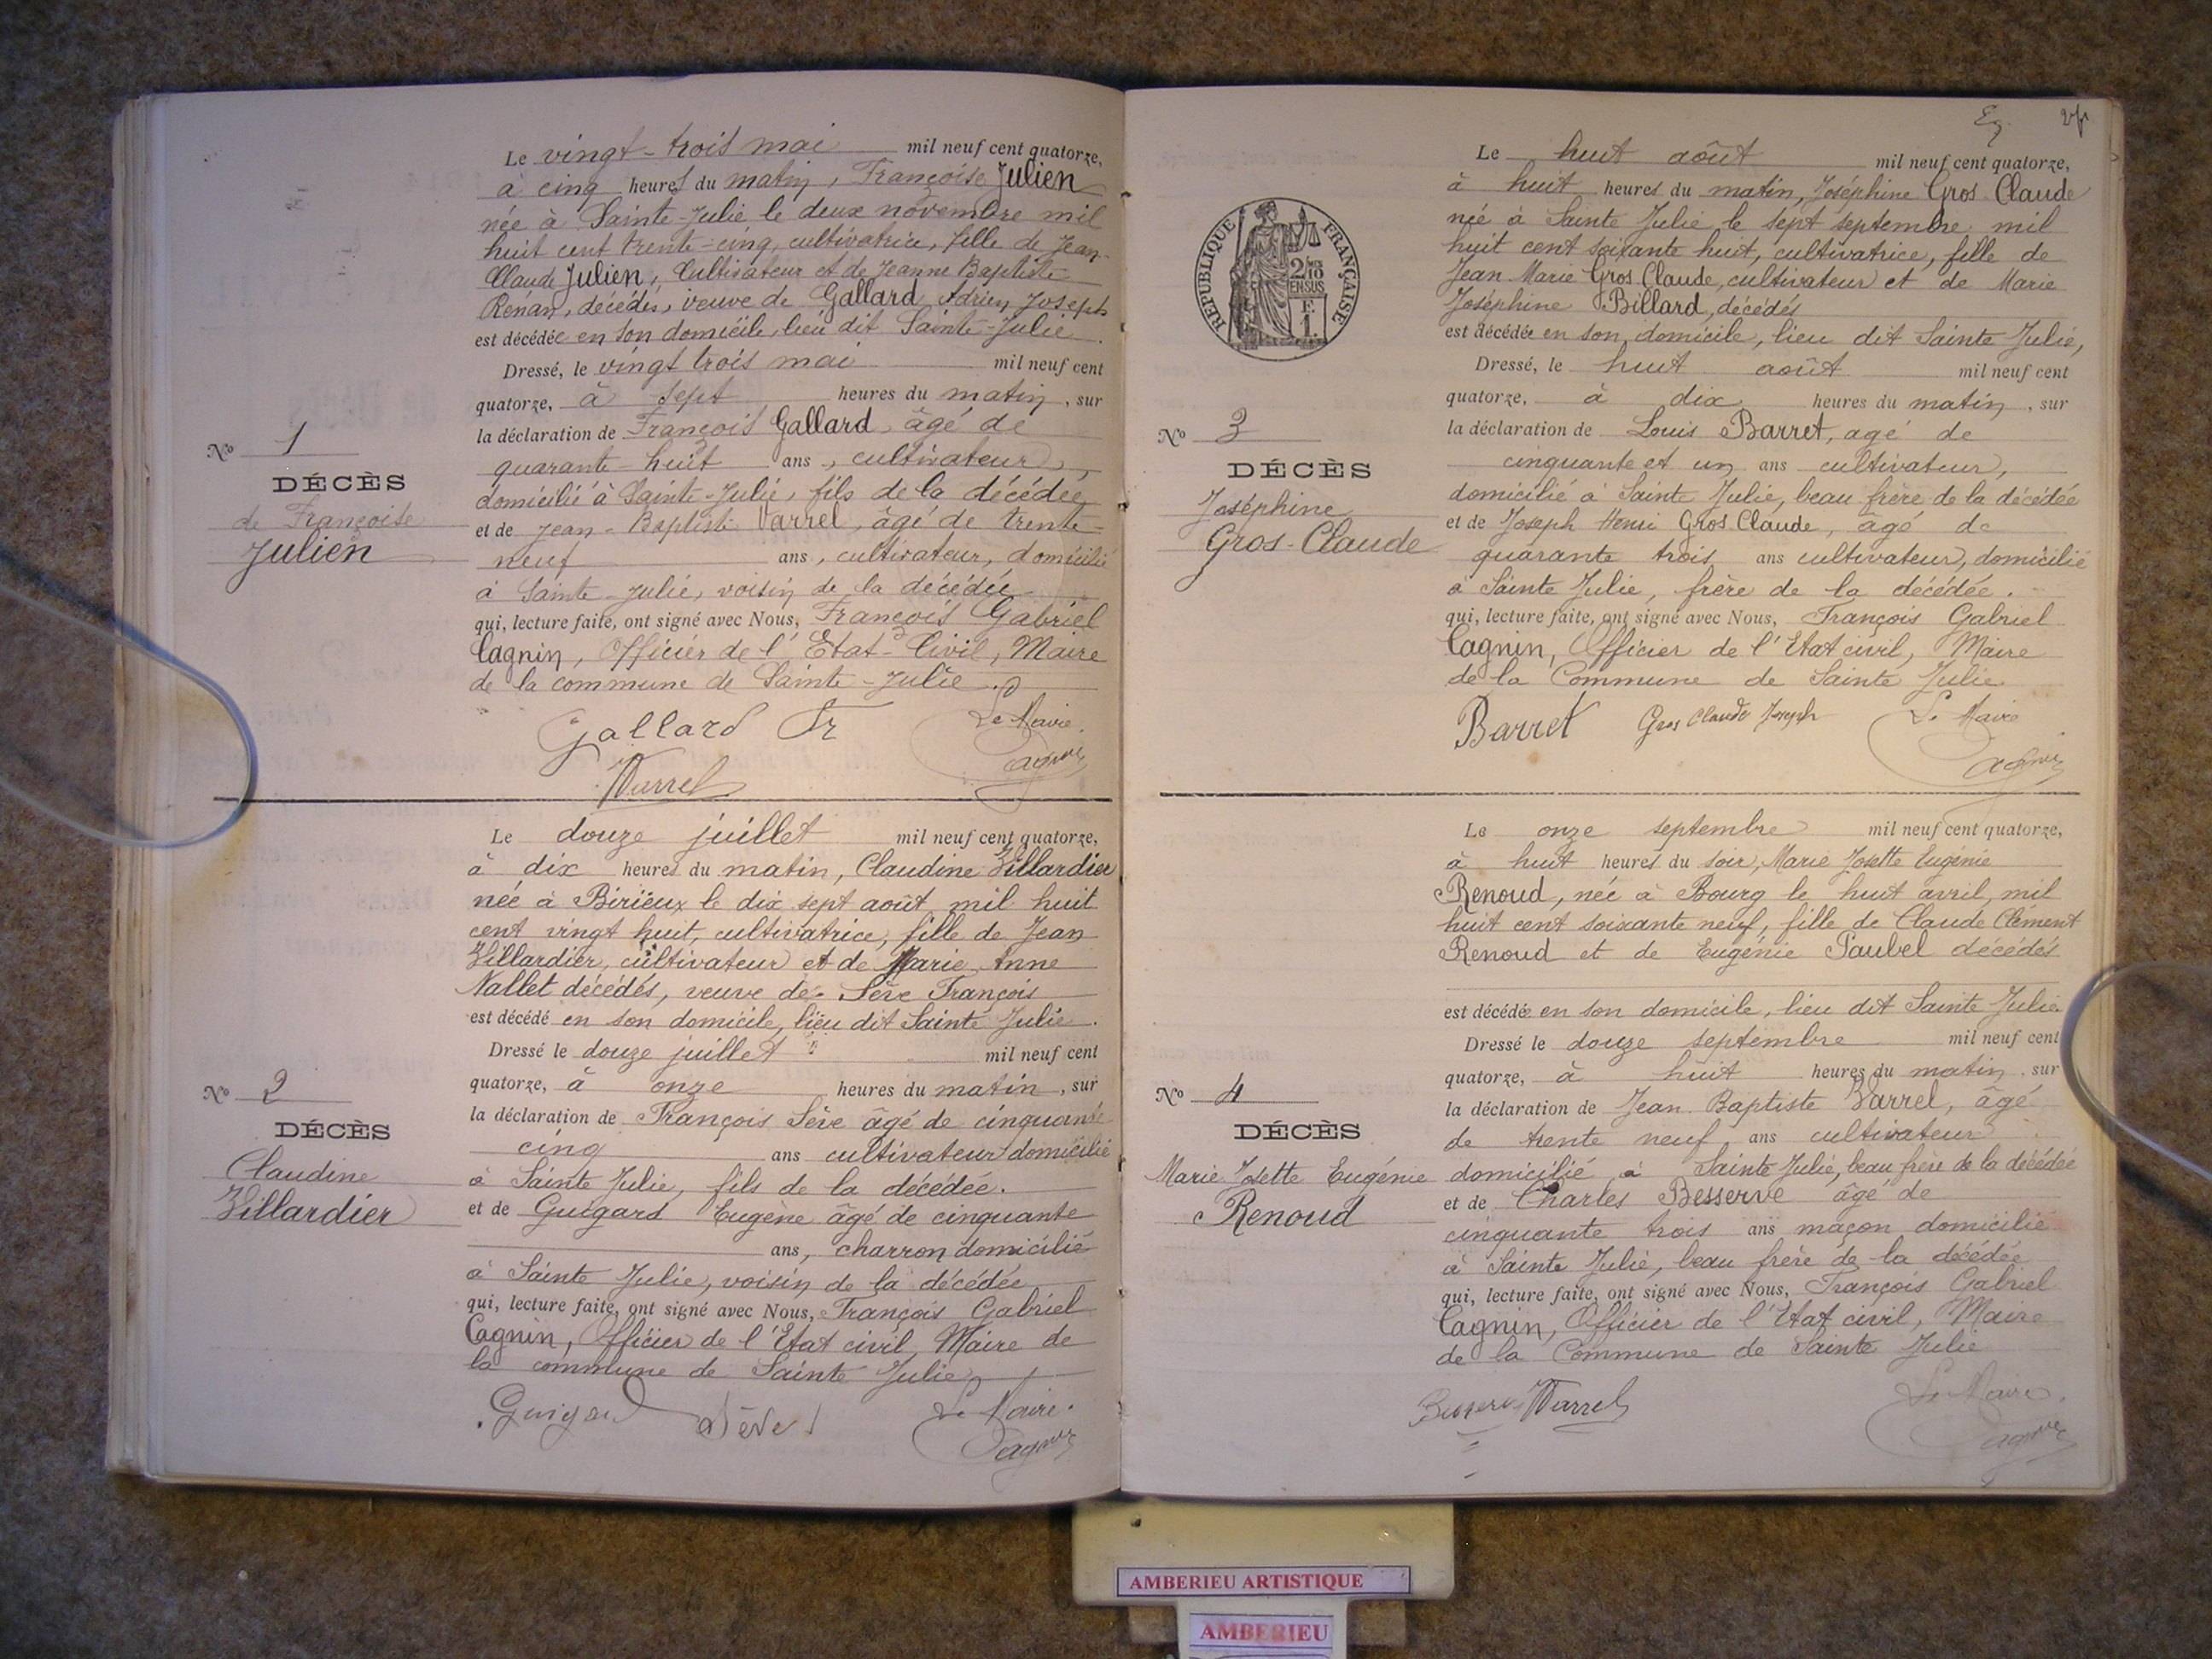 Le vingt-trois mai mil neuf cent quatorze,
à cinq heures du matin, Françoise Julien
née à Sainte-Julie le deux novembre mil
huit cent trente-cinq, cultivatrice, fille de Jean-
Claude Julien, Cultivateur et de Jeanne Baptiste
Renan, décédés, veuve de Gallard Adrien Joseph
est décédée en son domicile, lieu dit Sainte-Julie.
Dressé, le vingt trois mai mil neuf cent
quatorze, à sept heures du matin, sur
la déclaration de François Gallard, âgé de
quarante-huit ans, cultivateur,
domicilié à Sainte-Julie, fils de la décédée
et de Jean-Baptiste Varrel, âgé de trente-
neuf ans, cultivateur, domicilié
à Sainte-Julie, voisin de la décédée
qui, lecture faite, ont signé avec Nous, François Gabriel
Cagnin, Officier de l'Etat-Civil, Maire
de la commune de Sainte-Julie.
Gallard Fr
Le Maire
Varrel
Cagnin
No 1
DÉCÈS
de Françoise
Julien
Le douze juillet mil neuf cent quatorze,
à dix heures du matin, Claudine Villardier
née à Birieux le dix sept août mil huit
cent vingt huit, cultivatrice, fille de Jean
Villardier, cultivateur et de Marie Anne
Nallet décédés, veuve de Sève François
est décédé en son domicile, lieu dit Sainte Julie.
Dressé le douze juillet mil neuf cent
quatorze, à onze heures du matin, sur
la déclaration de François Sève âgé de cinquante
cinq ans cultivateur domicilié
à Sainte Julie, fils de la décédée.
et de Guigard Eugène âgé de cinquante
ans, charron domicilié
à Sainte Julie, voisin de la décédée
qui, lecture faite, ont signé avec Nous, François Gabriel
Cagnin, Officier de l'Etat civil, Maire de
la commune de Sainte Julie
Guigard Sève Le Maire.
Cagnin
No 2
DÉCÈS
Claudine
Villardier
RÉPUBLIQUE FRANÇAISE
2/10
EN SUS
F.
1.
Le huit août mil neuf cent quatorze,
à huit heures du matin, Joséphine Gros Claude
née à Sainte Julie le sept septembre mil
huit cent soixante huit, cultivatrice, fille de
Jean Marie Gros Claude, cultivateur et de Marie
Joséphine Billard, décédés
est décédée en son domicile, lieu dit Sainte Julie,
Dressé, le huit août mil neuf cent
quatorze, à dix heures du matin, sur
la déclaration de Louis Barret, agé de
cinquante et un ans cultivateur,
domicilié à Sainte Julie, beau frère de la décédée
et de Joseph Henri Gros Claude, âgé de
quarante trois ans cultivateur, domicilié
à Sainte Julie, frère de la décédée.
qui, lecture faite, ont signé avec Nous, François Gabriel
Cagnin, Officier de l'Etat civil, Maire
de la Commune de Sainte Julie
Barret Gros Claude Joseph Le Maire
Cagnin
No 3
DÉCÈS
Joséphine
Gros-Claude
Le onze septembre mil neuf cent quatorze,
à huit heures du soir, Marie Josette Eugénie
Renoud, née à Bourg le huit avril, mil
huit cent soixante neuf, fille de Claude Clément
Renoud et de Eugénie Paubel décédés
est décédée en son domicile, lieu dit Sainte Julie
Dressé le douze septembre mil neuf cent
quatorze, à huit heures du matin, sur
la déclaration de Jean Baptiste Varrel, âgé
de trente neuf ans cultivateur
domicilié à Sainte Julie, beau frère de la décédée
et de Charles Besserve âgé de
cinquante trois ans maçon domicilié
à Sainte Julie, beau frère de la décédée
qui, lecture faite, ont signé avec Nous, François Gabriel
Cagnin, Officier de l'Etat civil, Maire
de la Commune de Sainte Julie
Besserve Varrel Le Maire.
Cagnin
No 4
DÉCÈS
Marie Josette Eugénie
Renoud
AMBERIEU ARTISTIQUE
AMBERIEU